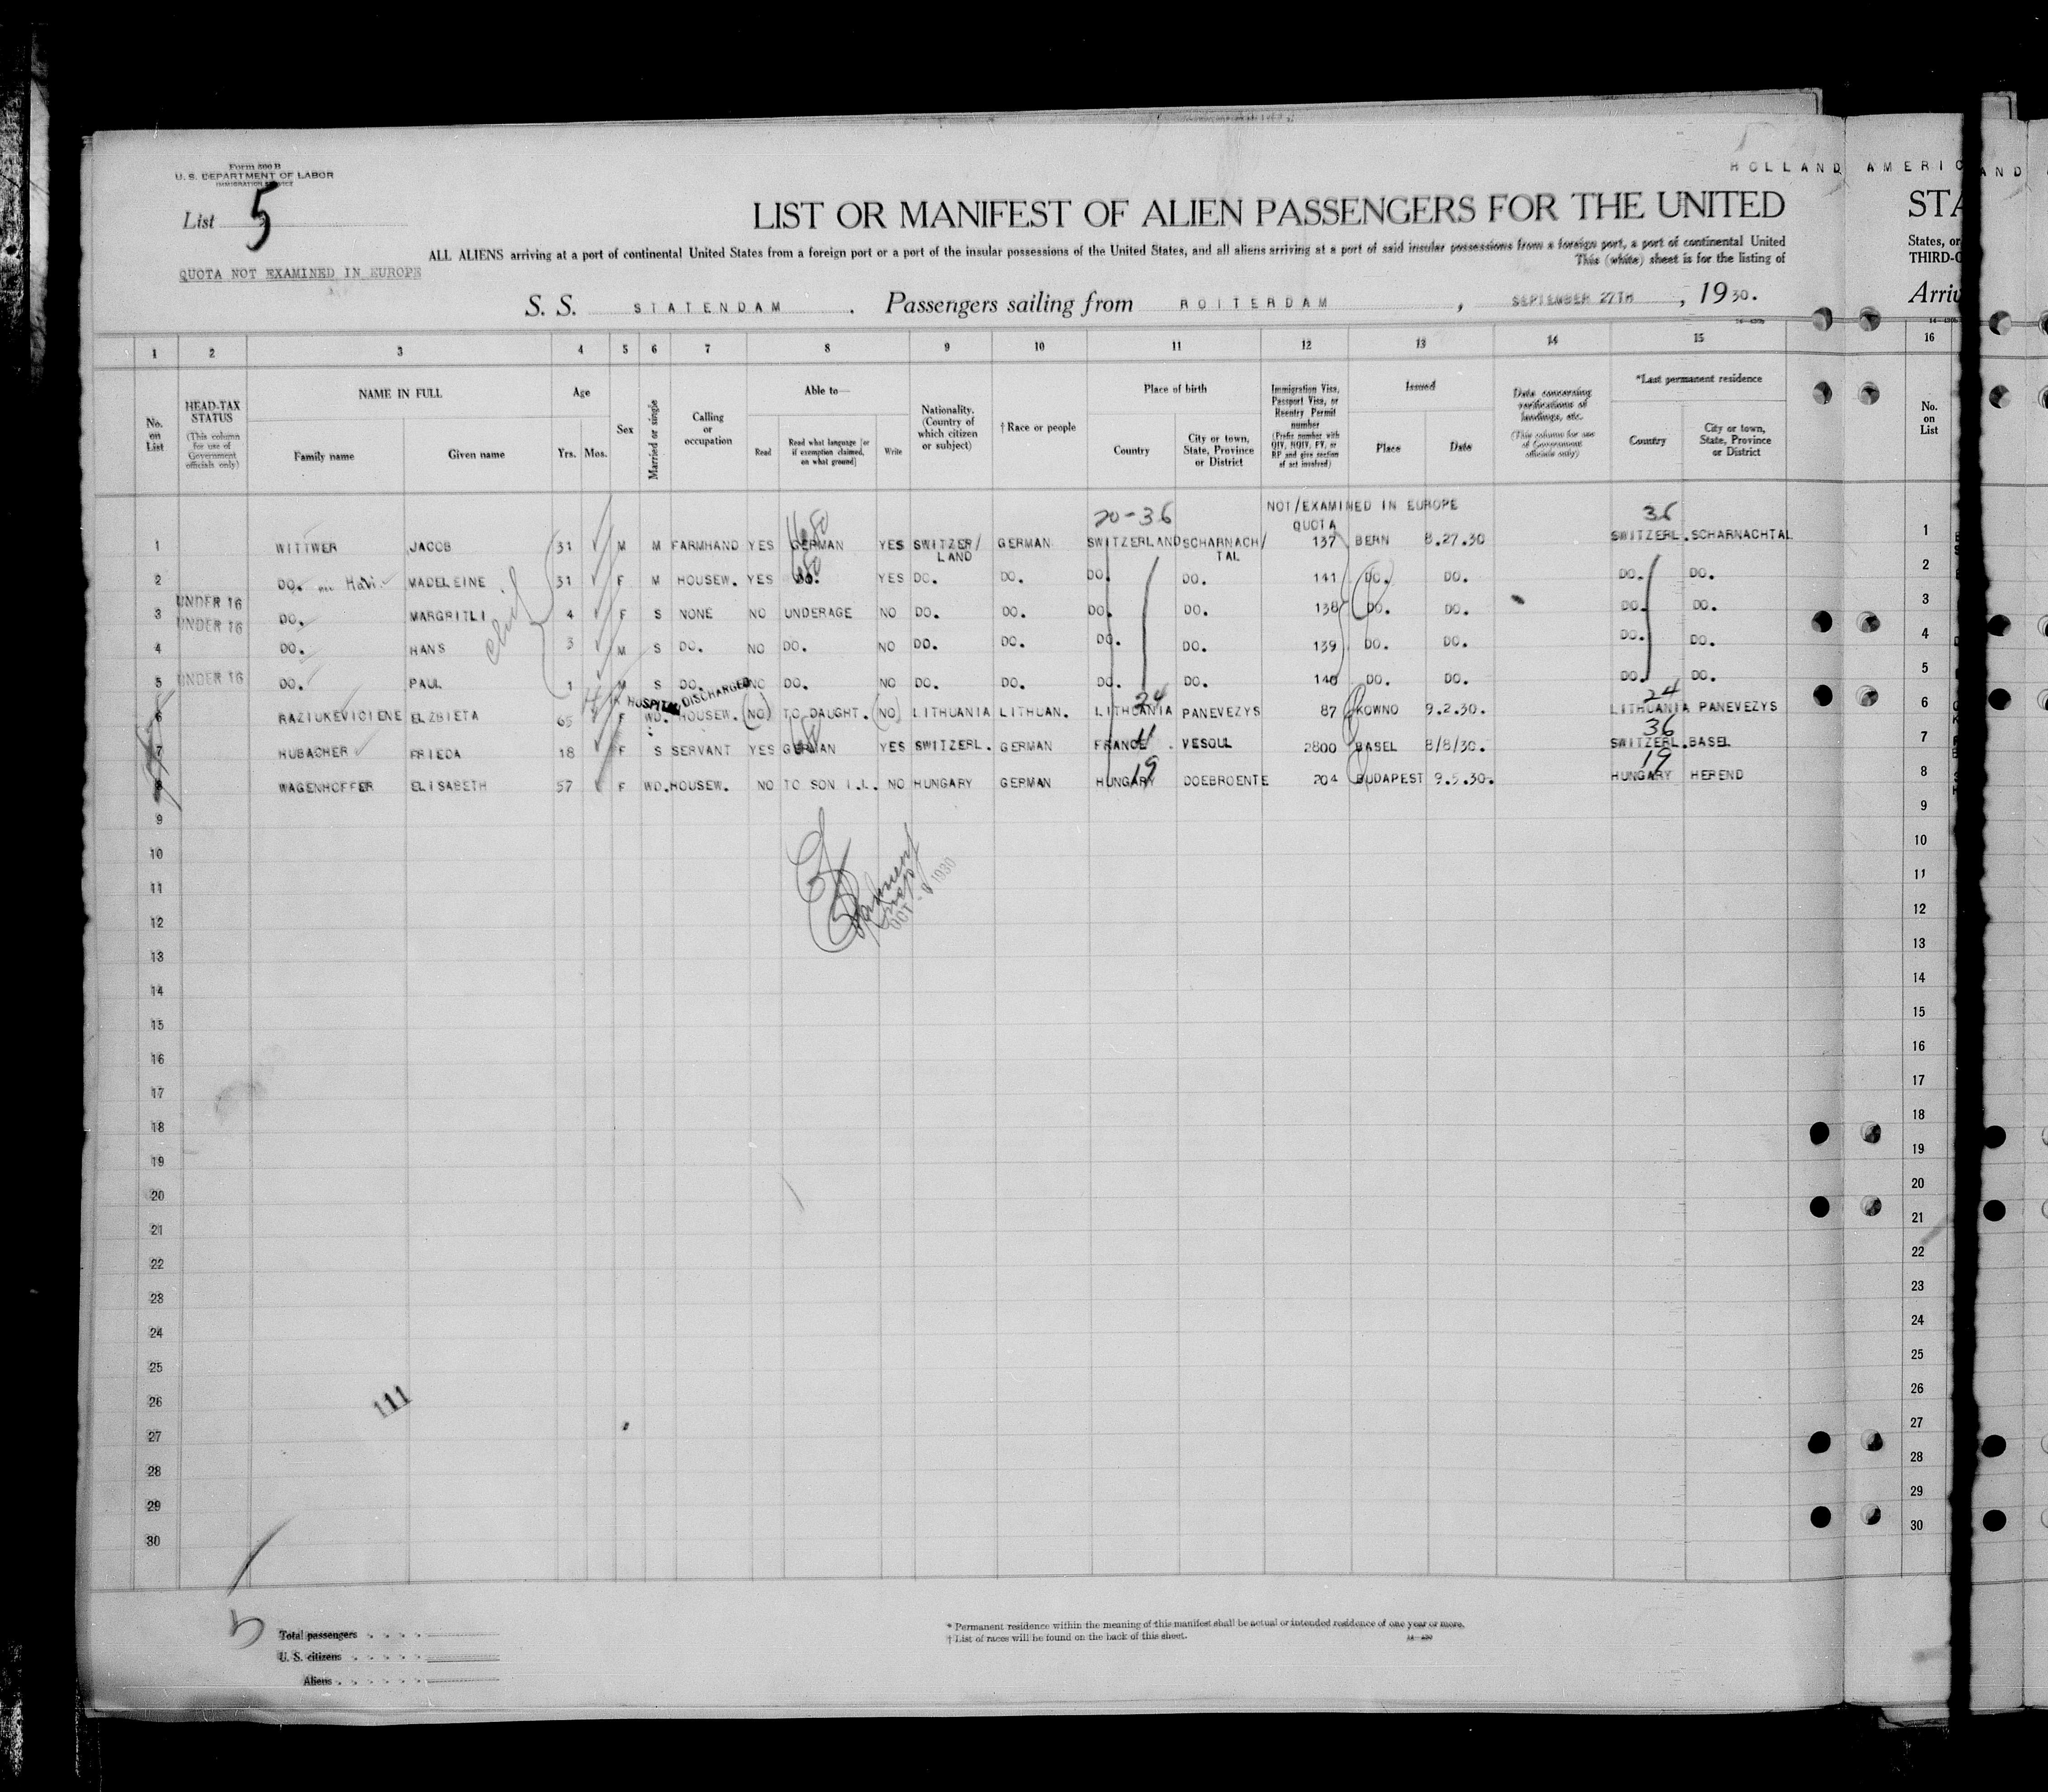 Form 500 B
U. S. DEPARTMENT OF LABOR
IMMIGRATION SERVICE
HOLLAND AMERIC
AND
List 5
LIST OR MANIFEST OF ALIEN PASSENGERS FOR THE UNITED
STA
ALL ALIENS arriving at a port of continental United States from a foreign port or a port of the insular possessions of the United States, and all aliens arriving at a port of said insular possessions from a foreign port, a port of continental United
States, or
This (white) sheet is for the listing of
THIRD-C
QUOTA NOT EXAMINED IN EUROPE
S. S. STATENDAM. Passengers sailing from ROTTERDAM, SEPTEMBER 27TH, 1930.
Arriv
1 2 3 4 5 6 7 8 9 10 11 12 13 14 15 16
No. on List
HEAD-TAX STATUS (This column for use of Government officials only)
NAME IN FULL
Family name
Given name
Age
Yrs. Mos.
Sex
Married or single
Calling or occupation
Able to—
Read
Read what language [or if exemption claimed, on what ground]
Write
Nationality. (Country of which citizen or subject)
† Race or people
Place of birth
Country
City or town, State, Province or District
Immigration Visa, Passport Visa, or Reentry Permit number (Prefix number with QIV, NQIV, PV, or RP and give section of act involved)
Issued
Place
Date
Data concerning verifications of landings, etc. (This column for use of Government officials only)
*Last permanent residence
Country
City or town, State, Province or District
No. on List
NOT/EXAMINED IN EUROPE
20-36
36
QUOTA
1 WITTWER JACOB 31 M M FARMHAND YES GERMAN YES SWITZER/LAND GERMAN SWITZERLAND SCHARNACH/TAL 137 BERN 8.27.30 SWITZERL. SCHARNACHTAL 1
2 DO. MADELEINE 31 F M HOUSEW. YES DO. YES DO. DO. DO. DO. 141 DO. DO. DO. DO. 2
UNDER 16
3 DO. MARGRITLI 4 F S NONE NO UNDERAGE NO DO. DO. DO. DO. 138 DO. DO. DO. DO. 3
UNDER 16
4 DO. HANS 3 M S DO. NO DO. NO DO. DO. DO. DO. 139 DO. DO. DO. DO. 4
5 UNDER 16 DO. PAUL 1 M S DO. NO DO. NO DO. DO. DO. DO. 140 DO. DO. DO. DO. 5
HOSPITAL DISCHARGED
24
24
6 RAZIUKEVICIENE ELZBIETA 65 F WD. HOUSEW. (NO) TO DAUGHT. (NO) LITHUANIA LITHUAN. LITHUANIA PANEVEZYS 87 KOWNO 9.2.30. LITHUANIA PANEVEZYS 6
11
36
7 HUBACHER FRIEDA 18 F S SERVANT YES GERMAN YES SWITZERL. GERMAN FRANCE. VESOUL 2800 BASEL 8/8/30. SWITZERL. BASEL 7
19
19
8 WAGENHOFFER ELISABETH 57 F WD. HOUSEW. NO TO SON I.L. NO HUNGARY GERMAN HUNGARY DOEBROENTE 204 BUDAPEST 9.5.30. HUNGARY HEREND 8
9 9
10 10
11 11
12 12
OCT - 8 1930
13 13
14 14
15 15
16 16
17 17
18 18
19 19
20 20
21 21
22 22
23 23
24 24
25 25
26 26
111
27 27
28 28
29 29
30 30
Total passengers
U. S. citizens
Aliens
* Permanent residence within the meaning of this manifest shall be actual or intended residence of one year or more.
† List of races will be found on the back of this sheet.